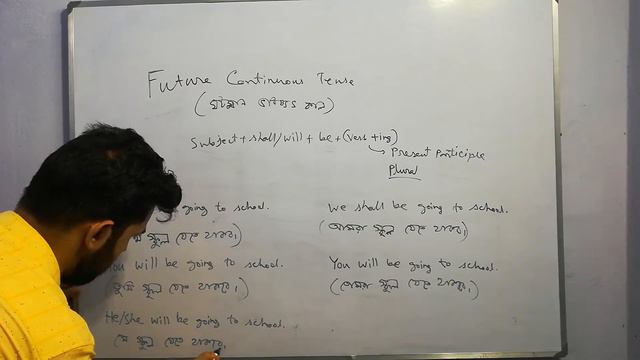 Future Continuous Tense
(ঘটমান ভবিষ্যৎ কাল)
Subject + shall/will + be + (verb + ing)
Present Participle
Plural
going to school.
We shall be going to school.
স্কুলে যেতে থাকব)
(আমরা স্কুলে যেতে থাকব)
You will be going to school.
You will be going to school.
(তুমি স্কুলে যেতে থাকবে)
(তোমরা স্কুলে যেতে থাকবে)
He/She will be going to school.
সে স্কুলে যেতে থাকবে